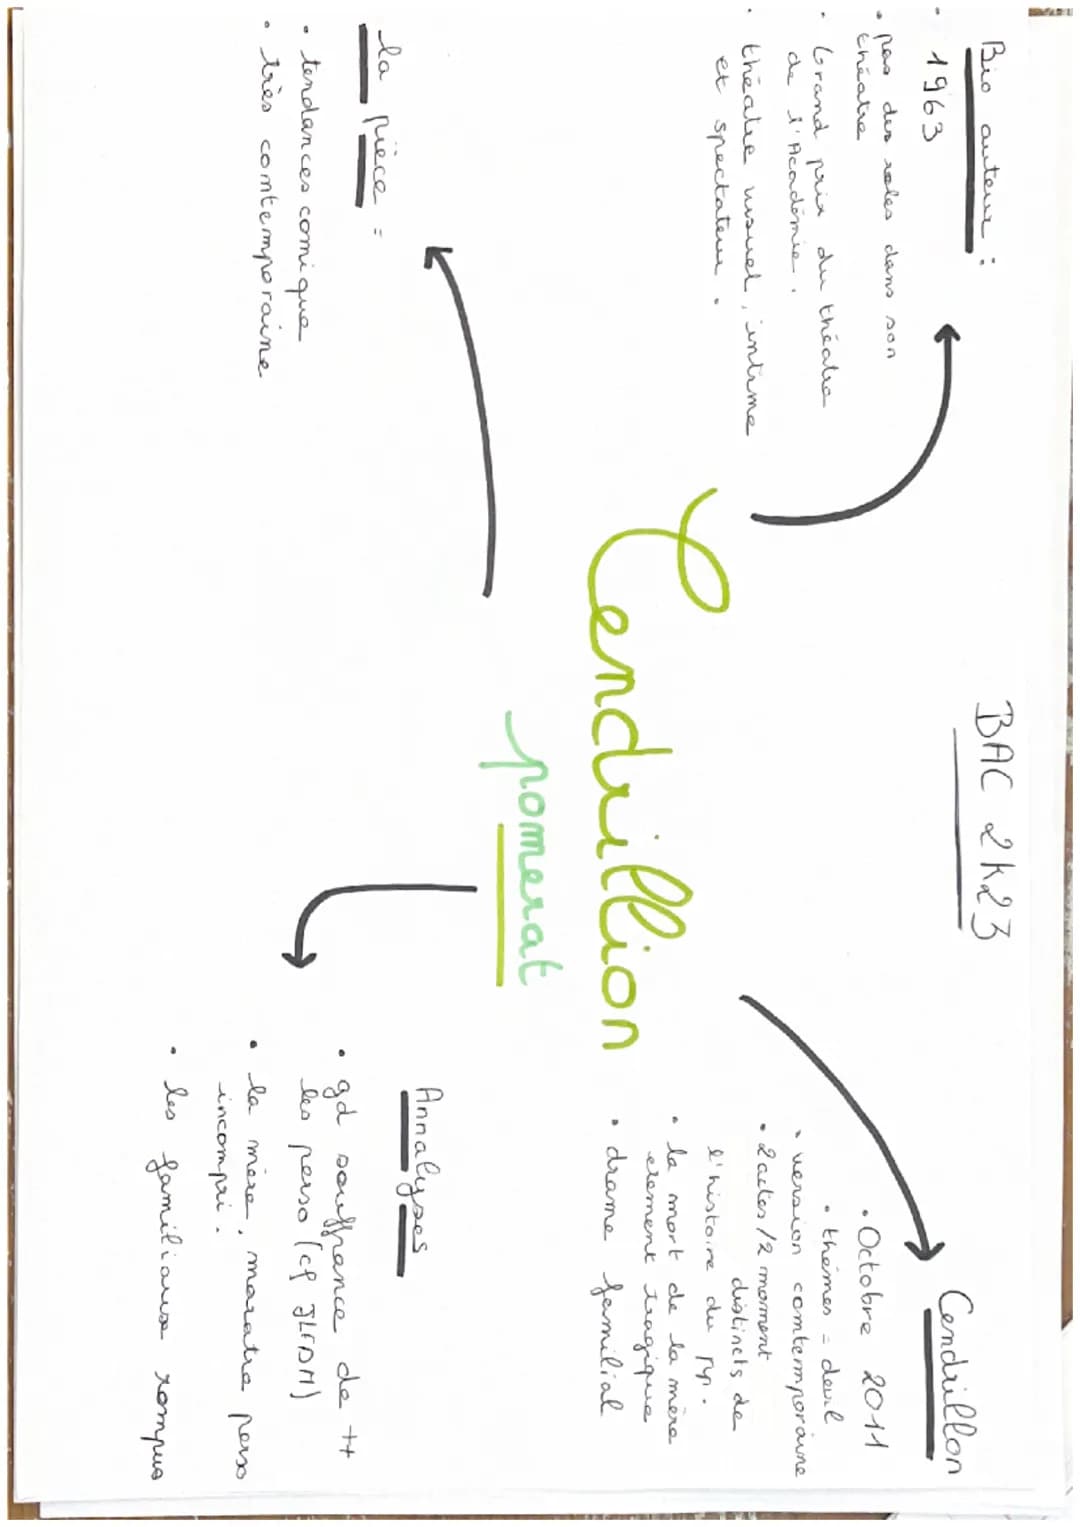 BAC 2k23
Bio auteur :
• 1963
• pas des roles dans son
théatre
• Grand prix du théatre
de l'Académie.
• théatre visuel, intime
et spectateur.
Cendrillion
pomerat
Cendrillon
• Octobre 2011
• thémes = deuil
• version comtemporaine
• 2 actes / 2 moment
distincts de
l'histoire du
• la mort de la mère
element tragique
• drame familial
la pièce =
• tendances comique
• très comtemporaine
Annalyses
• gd souffrance de tt
les perso (cf JLFDM)
• la mère, maratre perso
incompri.
• les familiaux rompus